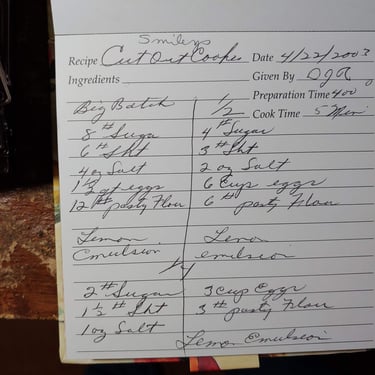 Smileys
Recipe Cut Out Cookie Date 4/22/2003
Ingredients Given By
Preparation Time 400
Big Batch 1/2 Cook Time 5 Min
8 # Suga 4 # Sugar
6 # Sht 3 # Sht
4 oz Salt 2 oz Salt
1 1/2 qt eggs 6 Cup eggs
12 # pasty Flour 6 # pasty Flour
Lemon Lemon
Emulsion emulsion
1/4
2 # Sugar 3 Cup Eggs
1 1/2 # Sht 3 # pasty Flour
1 oz Salt
Lemon Emulsion